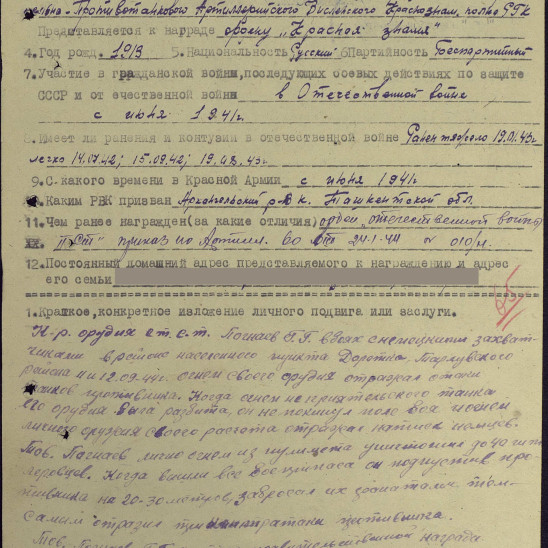 Противотанкового Артиллерийского Висленского Краснознам. полка РГК
Представляется к награде ордену "Красное знамя"
4. Год рожд. 1913 5. Национальность Русский 6 Партийность Беспартийный
7. Участие в гражданской войны, последующих боевых действиях по защите
СССР и от ечественной войны в Отечественной войне
с июня 1941г.
8. Имеет ли ранения и контузии в отечественной войне Ранен тяжело 19.01.43г
легко 14.07.42; 15.09.42; 19.08.43г.
9. С какого времени в Красной Армии с июня 1941г
10. Каким РВК призван Ташкентской обл.
11. Чем ранее награжден (за какие отличия) орден "отечественной войны
приказ по Артилл. 24.1.44 010/н.
12. Постоянный домашний адрес представляемого к награждению и адрес
его семьи
1. Краткое, конкретное изложение личного подвига или заслуги.
К-р орудия ст. с-т. в боях с немецкими захват-
чиками в районе населенного пункта Доротка
района 11 и 12.09.44г. огнем своего орудия отражал атаки
танков противника. Когда огнем неприятельского танка
его орудия была разбита, он не покинул поле боя и огнем
личного оружия своего расчета отражал натиск немцев.
Тов. огнем из пулемета уничтожено до 40 гит-
леровцев. Когда вышли все боеприпаса он подпустив про-
тивника на 20-30 метров, забросал их гранатами. Тем
самым отразил три контратаки противника.
Тов. правительственной награда